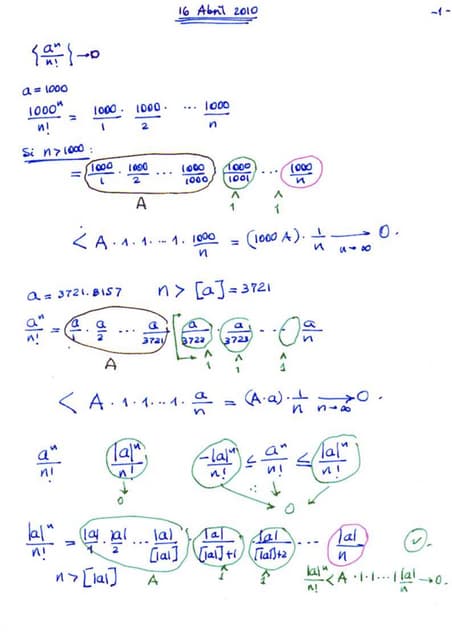 16 Abril 2010 -1-
{aⁿ/n!} → 0
a = 1000
1000ⁿ/n! = 1000/1 · 1000/2 · ··· 1000/n
Si n>1000:
= 1000/1 · 1000/2 ··· 1000/1000 · 1000/1001 ··· 1000/n
A ^ 1 ^ 1
< A · 1 · 1 ··· 1 · 1000/n = (1000 A) · 1/n → n→∞ 0.
a = 3721.8157 n > [a] = 3721
aⁿ/n! = a/1 · a/2 ··· a/3721 [ a/3722 · a/3723 ··· a/n
A ^ 1 ^ 1 ^ 1
< A · 1 · 1 ··· 1 · a/n = (A·a) · 1/n → n→∞ 0.
aⁿ/n! |a|ⁿ/n! -|a|ⁿ/n! ≤ aⁿ/n! ≤ |a|ⁿ/n!
↓ 0 ∴ ↓ 0
|a|ⁿ/n! = |a|/1 · |a|/2 ··· |a|/[|a|] · |a|/[|a|]+1 · |a|/[|a|]+2 ··· |a|/n ✓.
n > [|a|] A ^ 1 ^ 1 |a|ⁿ/n! < A · 1 · 1 ··· 1 |a|/n → 0.